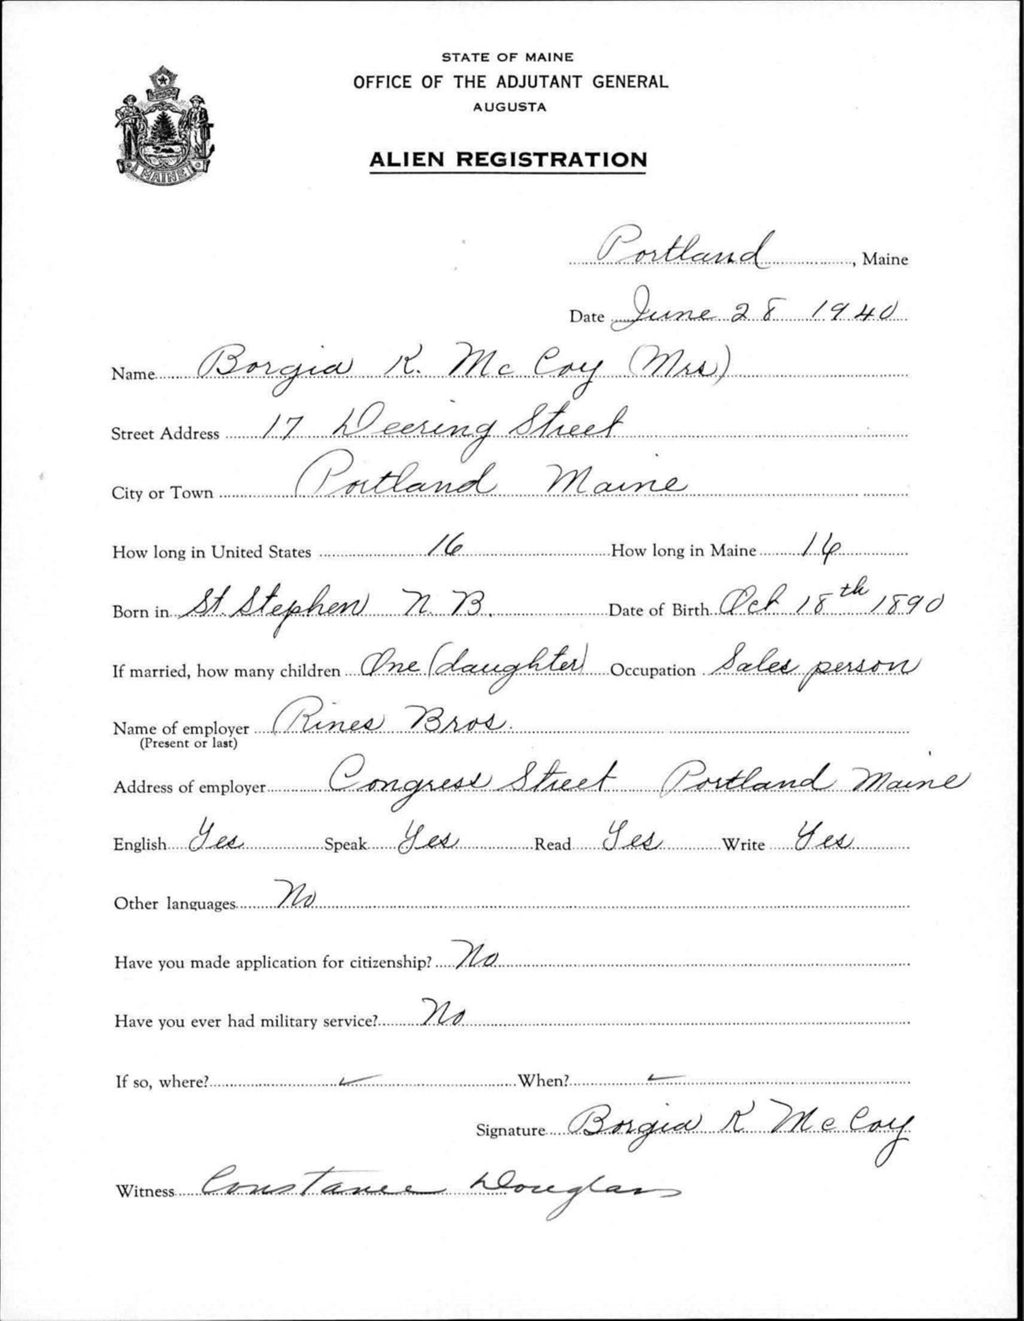 STATE OF MAINE
OFFICE OF THE ADJUTANT GENERAL
AUGUSTA
ALIEN REGISTRATION
MAINE
Portland, Maine
Date June 28 1940
Name Borgia K. McCoy (Mrs)
Street Address 17 Deering Street
City or Town Portland Maine
How long in United States 16 How long in Maine 16
Born in St. Stephen N B. Date of Birth Oct 18th 1890
If married, how many children One (daughter) Occupation Sales person
Name of employer Rines Bros.
(Present or last)
Address of employer Congress Street Portland Maine
English Yes Speak Yes Read Yes Write Yes
Other languages No
Have you made application for citizenship? No
Have you ever had military service? No
If so, where? ✓ When? ✓
Signature Borgia K McCoy
Witness Constance Douglass